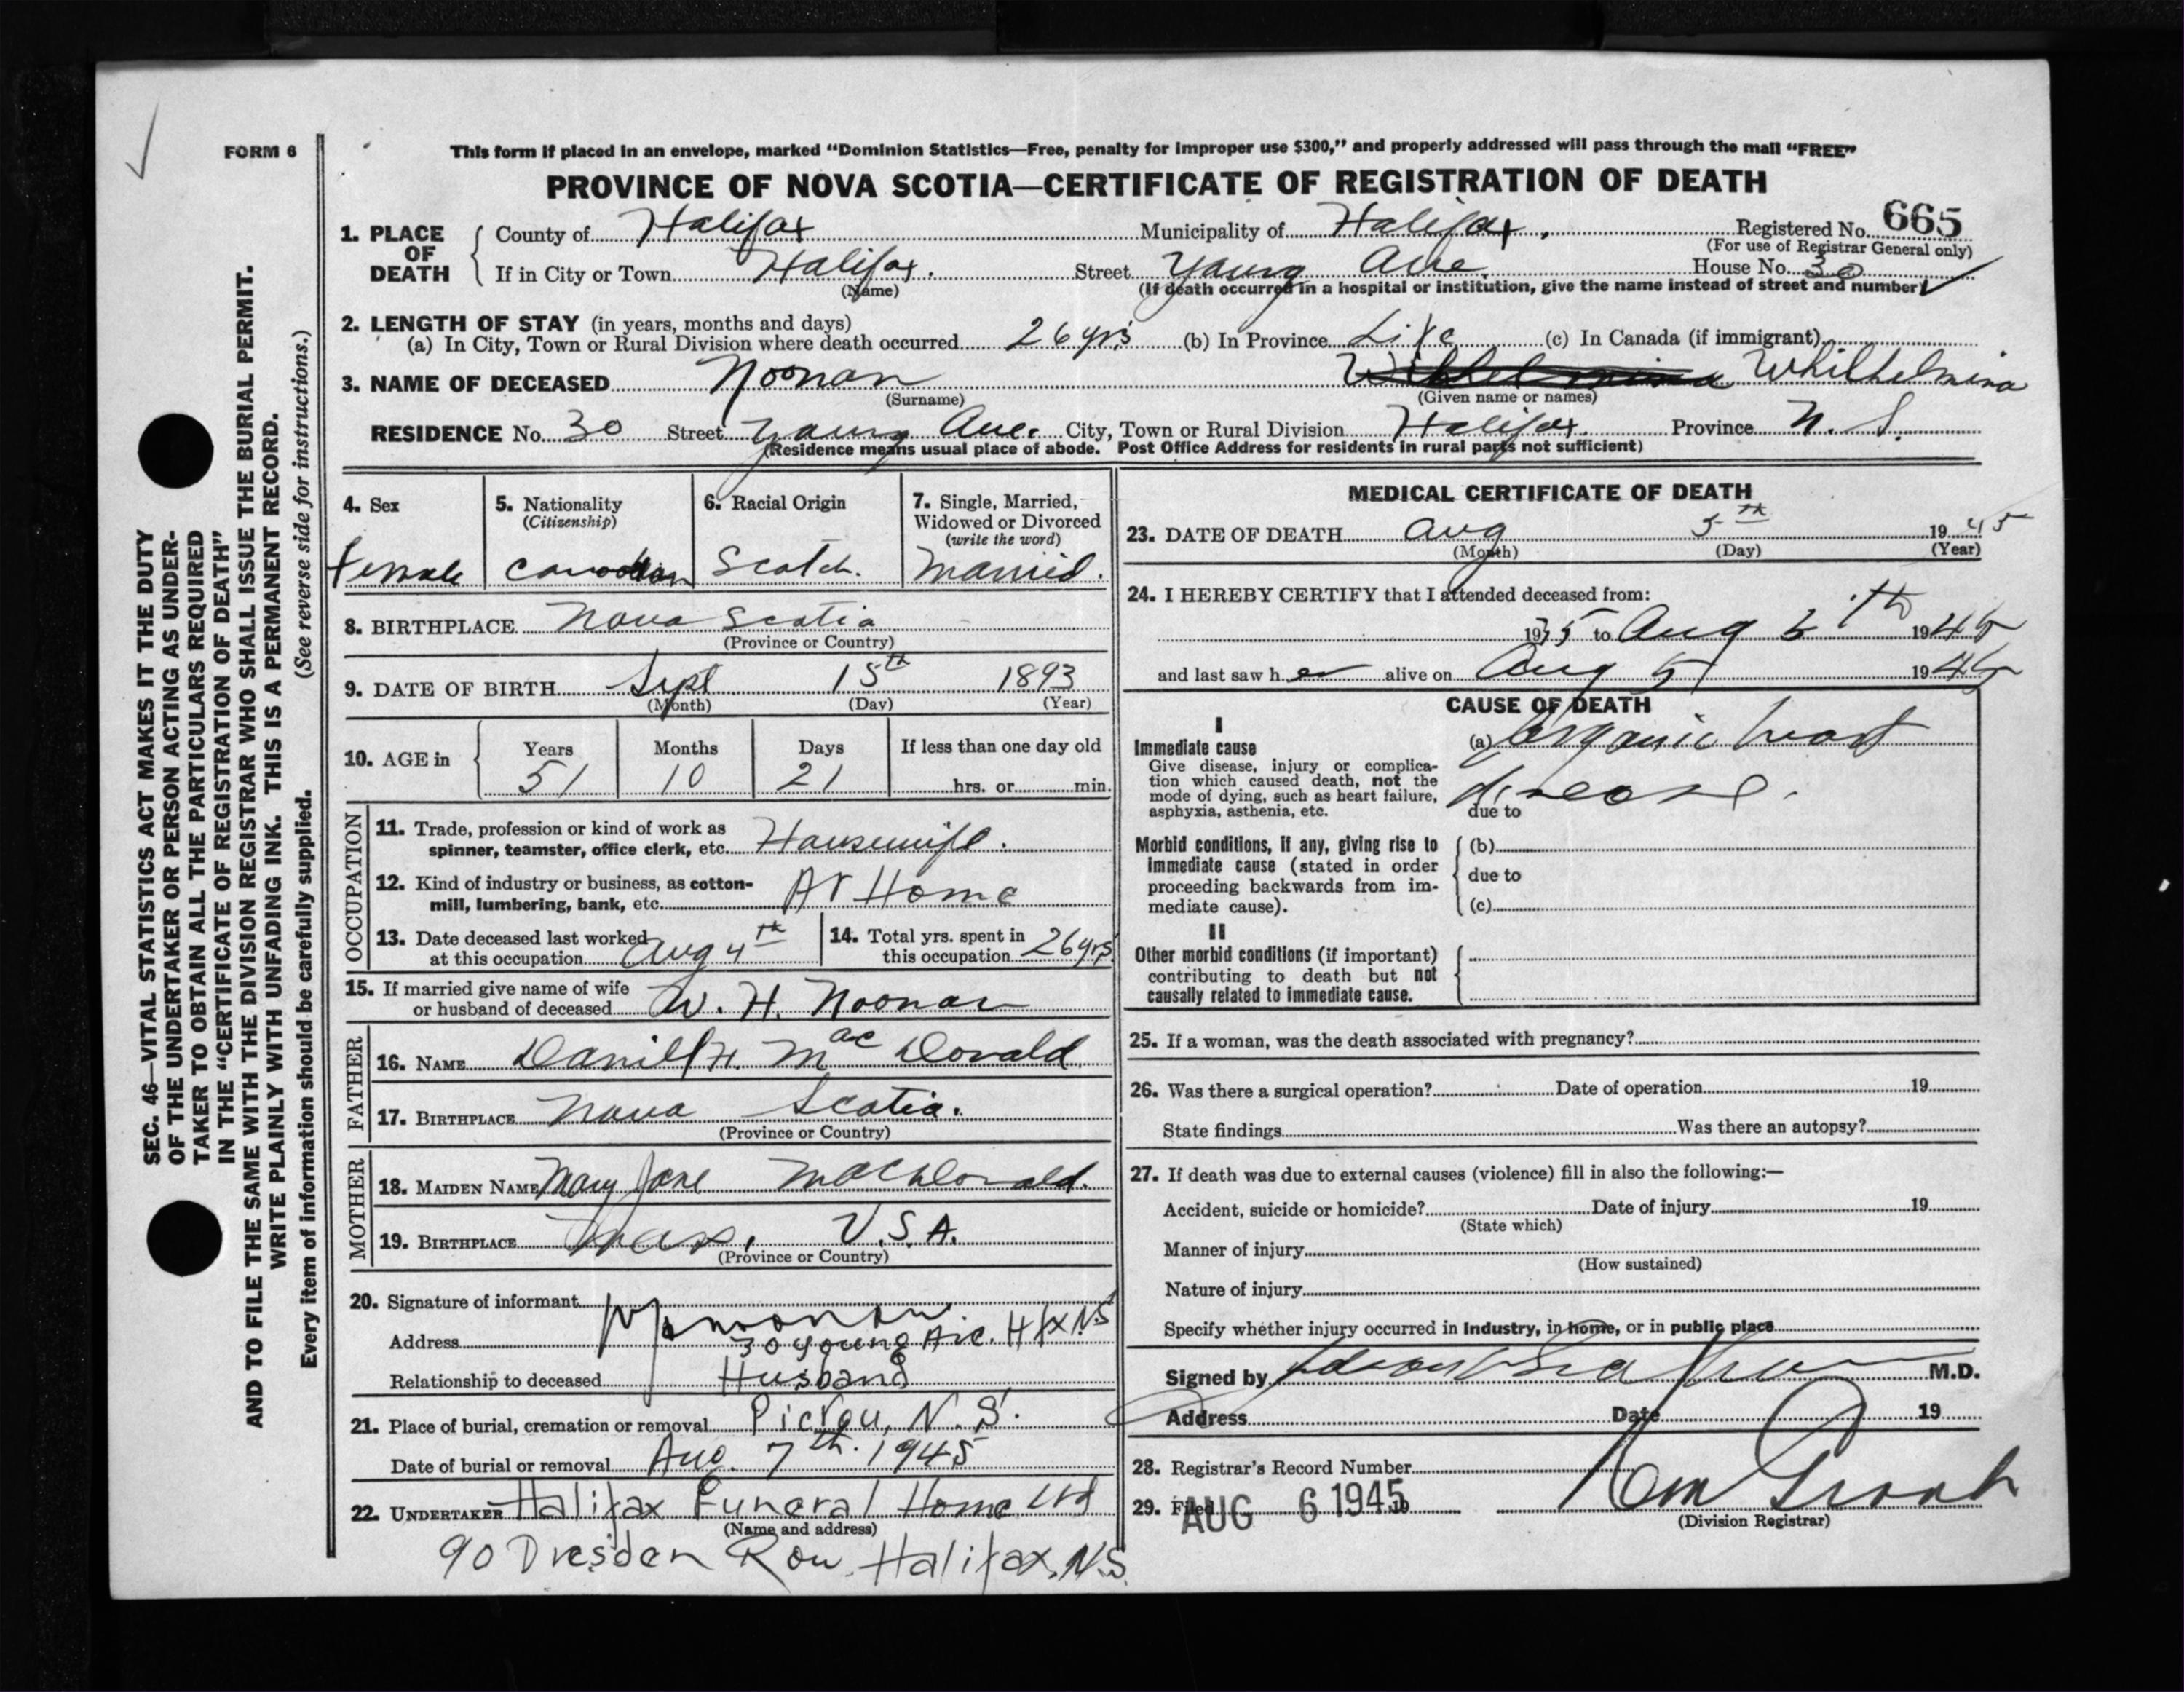 FORM 6
This form if placed in an envelope, marked “Dominion Statistics—Free, penalty for improper use $300,” and properly addressed will pass through the mail “FREE”
PROVINCE OF NOVA SCOTIA—CERTIFICATE OF REGISTRATION OF DEATH
1. PLACE OF DEATH County of Halifax Municipality of Halifax, Registered No. 665
(For use of Registrar General only)
If in City or Town Halifax. Street Young Ave. House No. 30
(Name) (If death occurred in a hospital or institution, give the name instead of street and number)
2. LENGTH OF STAY (in years, months and days)
(a) In City, Town or Rural Division where death occurred 26 yrs (b) In Province Life (c) In Canada (if immigrant)
3. NAME OF DECEASED Noonan Whilhelmina
(Surname) (Given name or names)
RESIDENCE No. 30 Street Young Ave. City, Town or Rural Division Halifax. Province N. S.
(Residence means usual place of abode. Post Office Address for residents in rural parts not sufficient)
4. Sex
Female
5. Nationality
(Citizenship)
Canadian
6. Racial Origin
Scotch.
7. Single, Married,
Widowed or Divorced
(write the word)
Married.
8. BIRTHPLACE Nova Scotia
(Province or Country)
9. DATE OF BIRTH Sept 15th 1893
(Month) (Day) (Year)
10. AGE in Years Months Days If less than one day old
51 10 21 hrs. or min.
OCCUPATION
11. Trade, profession or kind of work as
spinner, teamster, office clerk, etc. Housewife.
12. Kind of industry or business, as cotton-
mill, lumbering, bank, etc. At Home
13. Date deceased last worked
at this occupation Aug 4th
14. Total yrs. spent in
this occupation 26 yrs
15. If married give name of wife
or husband of deceased W. H. Noonan
FATHER
16. NAME Daniel H. MacDonald
17. BIRTHPLACE Nova Scotia.
(Province or Country)
MOTHER
18. MAIDEN NAME Mary Jane MacDonald.
19. BIRTHPLACE Mass, U.S.A.
(Province or Country)
20. Signature of informant
Address 30 Young Ave. Hfx N.S
Relationship to deceased Husband
21. Place of burial, cremation or removal Pictou, N.S.
Date of burial or removal Aug. 7th. 1945
22. UNDERTAKER Halifax Funeral Home Ltd
(Name and address)
90 Dresden Row, Halifax, N.S.
MEDICAL CERTIFICATE OF DEATH
23. DATE OF DEATH Aug 5th 1945
(Month) (Day) (Year)
24. I HEREBY CERTIFY that I attended deceased from:
1935 to Aug 5th 1945
and last saw her alive on Aug 5 1945
CAUSE OF DEATH
I
Immediate cause
Give disease, injury or complica-
tion which caused death, not the
mode of dying, such as heart failure,
asphyxia, asthenia, etc.
(a) Organic heart
disease.
due to
Morbid conditions, if any, giving rise to
immediate cause (stated in order
proceeding backwards from im-
mediate cause).
(b)
due to
(c)
II
Other morbid conditions (if important)
contributing to death but not
causally related to immediate cause.
25. If a woman, was the death associated with pregnancy?
26. Was there a surgical operation? Date of operation 19
State findings Was there an autopsy?
27. If death was due to external causes (violence) fill in also the following:—
Accident, suicide or homicide? Date of injury 19
(State which)
Manner of injury
(How sustained)
Nature of injury
Specify whether injury occurred in Industry, in home, or in public place
Signed by M.D.
Address Date 19
28. Registrar's Record Number
29. Filed AUG 6 1945 19
(Division Registrar)
SEC. 46—VITAL STATISTICS ACT MAKES IT THE DUTY
OF THE UNDERTAKER OR PERSON ACTING AS UNDER-
TAKER TO OBTAIN ALL THE PARTICULARS REQUIRED
IN THE “CERTIFICATE OF REGISTRATION OF DEATH”
AND TO FILE THE SAME WITH THE DIVISION REGISTRAR WHO SHALL ISSUE THE BURIAL PERMIT.
WRITE PLAINLY WITH UNFADING INK. THIS IS A PERMANENT RECORD.
Every item of information should be carefully supplied. (See reverse side for instructions.)